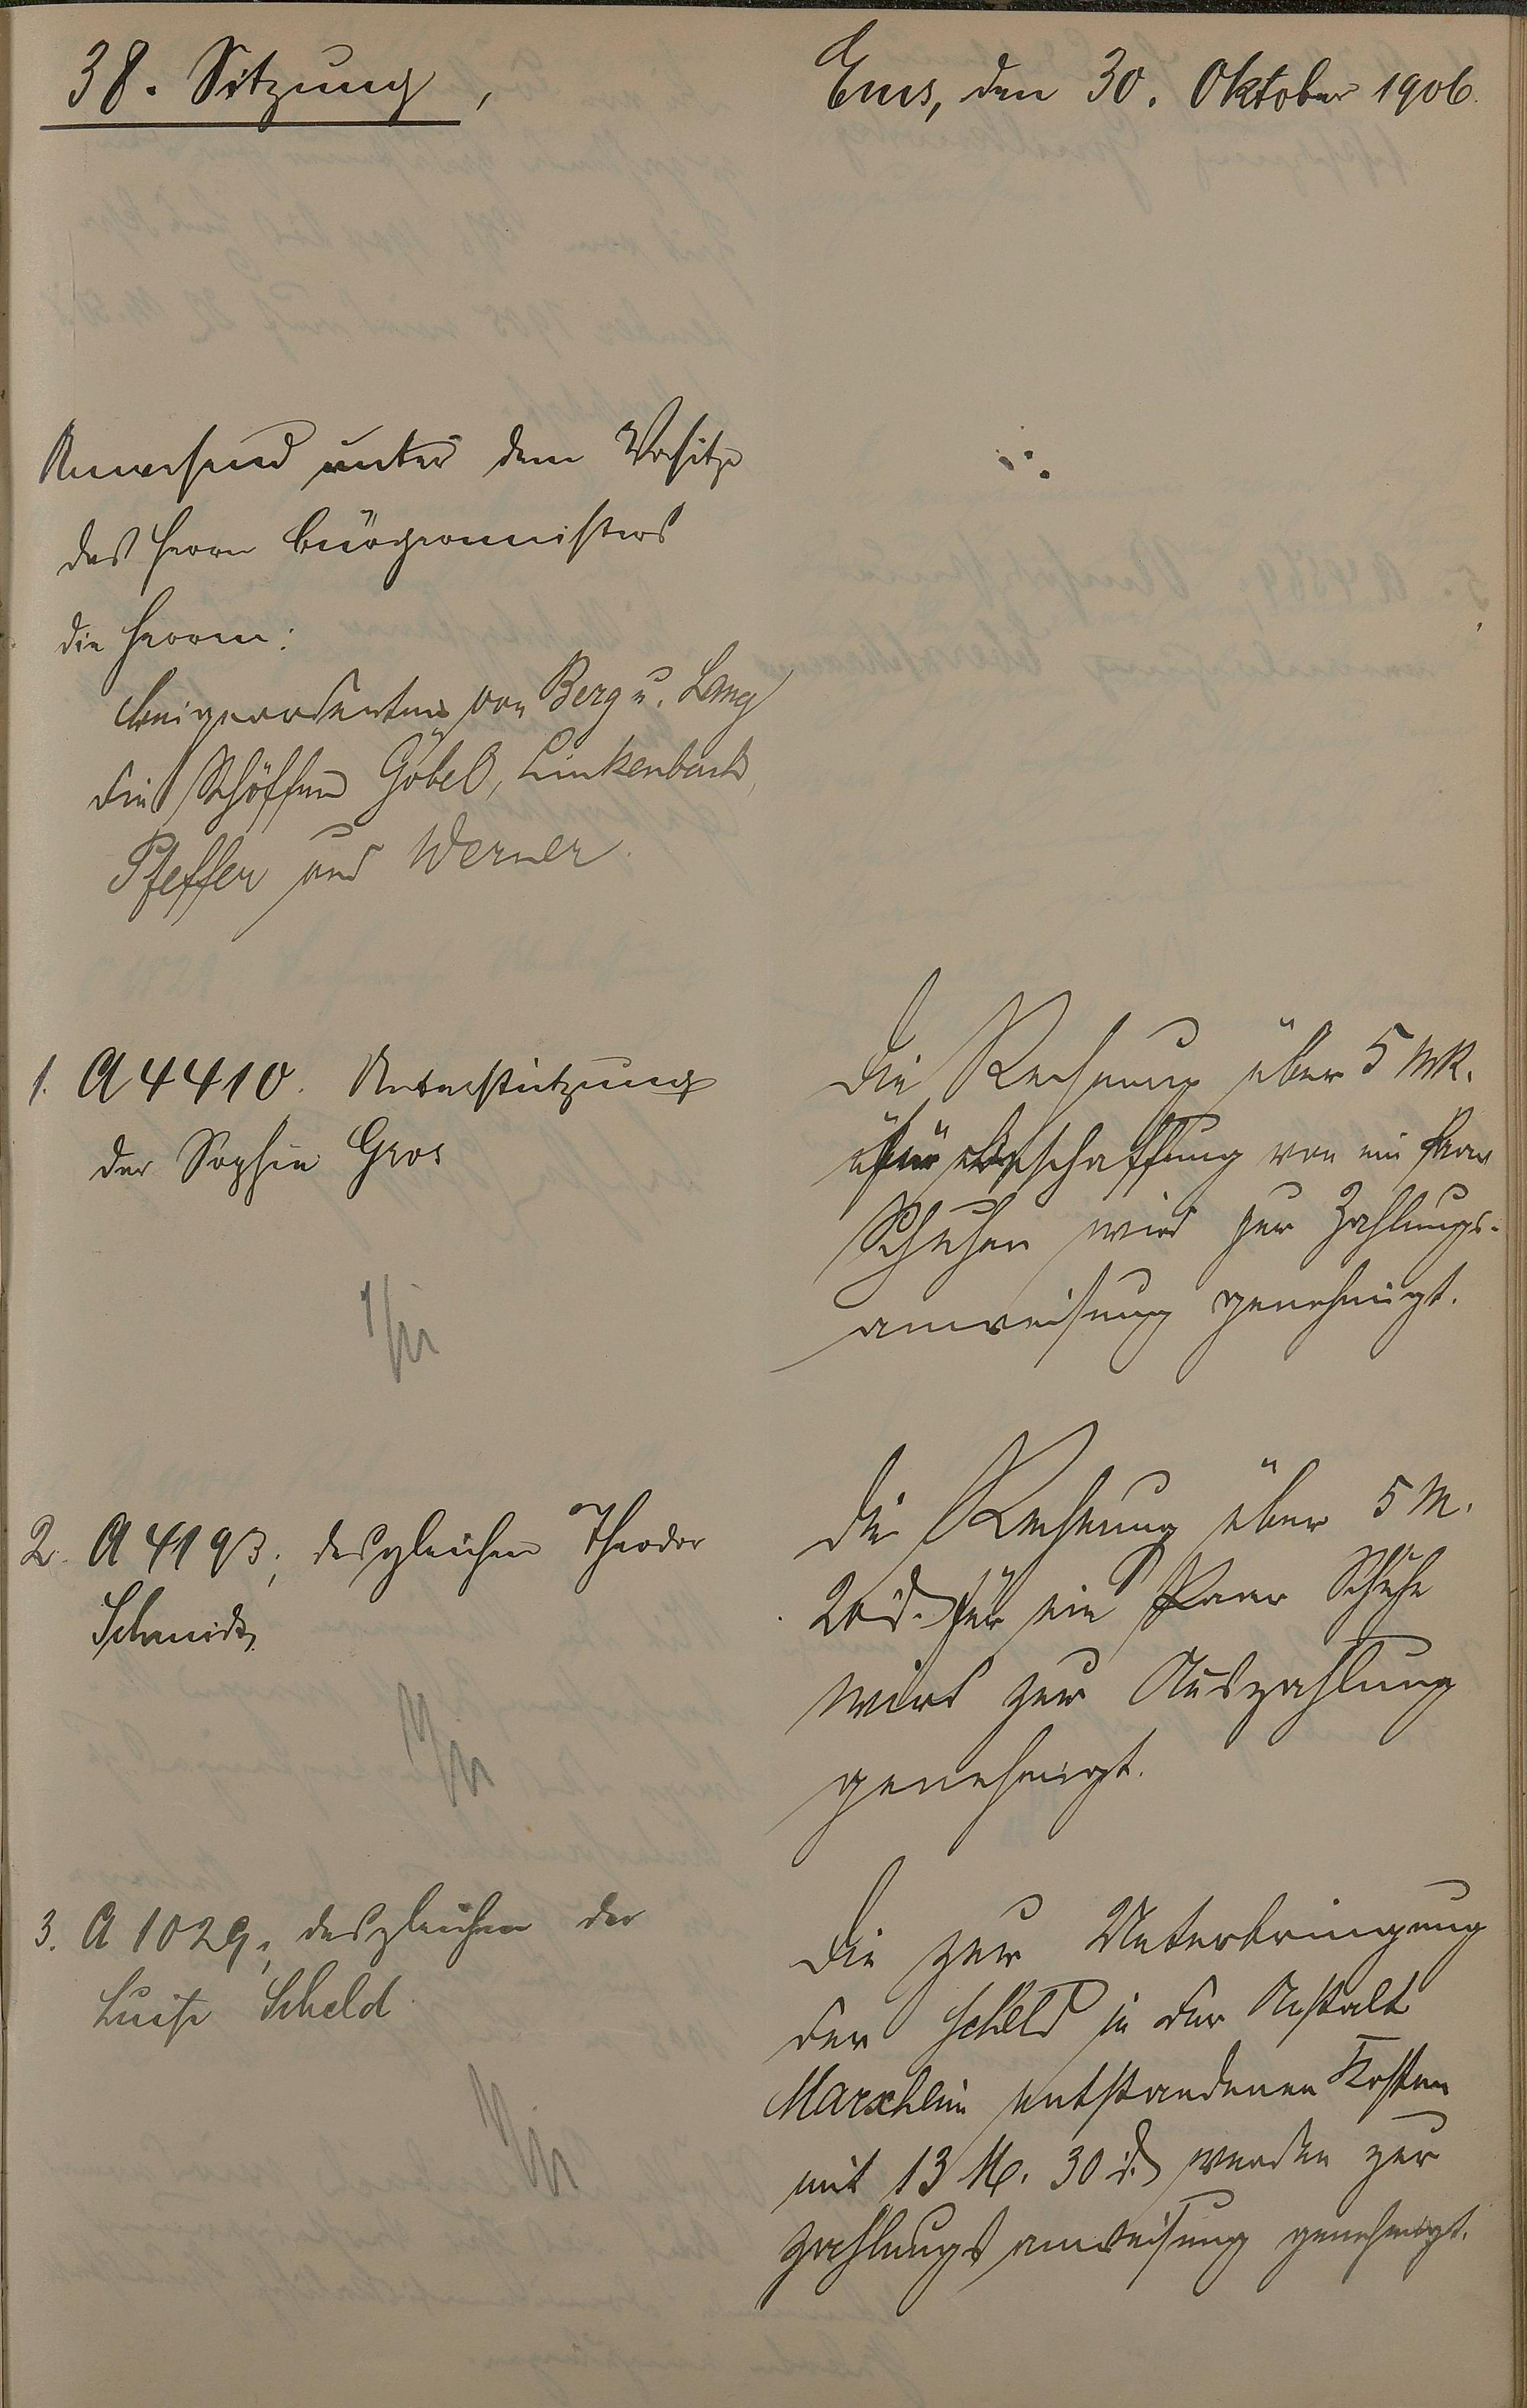 38. Sitzung,
Ems, den 30. Oktober 1906.
Anwesend unter dem Vorsitze
des Herrn Bürgermeisters
die Herren:
Beigeordneten von Berg u. Lang
die Schöffen Göbel, Linkenbach,
Pfeffer und Werner.
1. A 4410. Unterstützung
der Sophie Gros
Die Rechnung über 5 Mk.
für Beschaffung von ein Paar
Schuhen wird zur Zahlungs-
anweisung genehmigt.
2. A 4193, desgleichen Theodor
Schmidt
Die Rechnung über 5 M.
20 d. für ein Paar Schuhe
wird zur Auszahlung
genehmigt.
3. A 1029, desgleichen der
Luise Scheld
Die zur Unterbringung
der Scheld in der Anstalt
Marxheim entstandenen Kosten
mit 13 M. 30 d. werden zur
Zahlungsanweisung genehmigt.